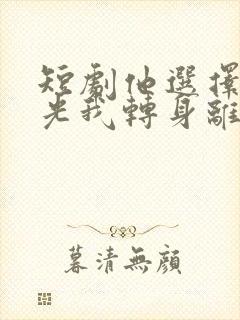 短劇他選擇
光我轉身離
暮清無顏